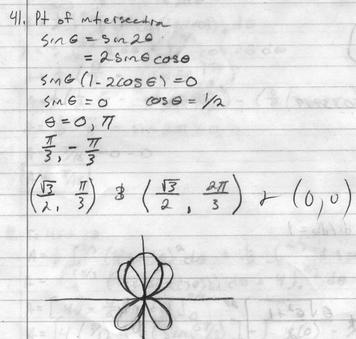 41. Pt of intersection
sin θ = sin 2θ
= 2 sin θ cos θ
sin θ (1 - 2cos θ) = 0
sin θ = 0 cos θ = 1/2
θ = 0, π
π/3, - π/3
(√3/2, π/3) & (√3/2, 2π/3) & (0,0)